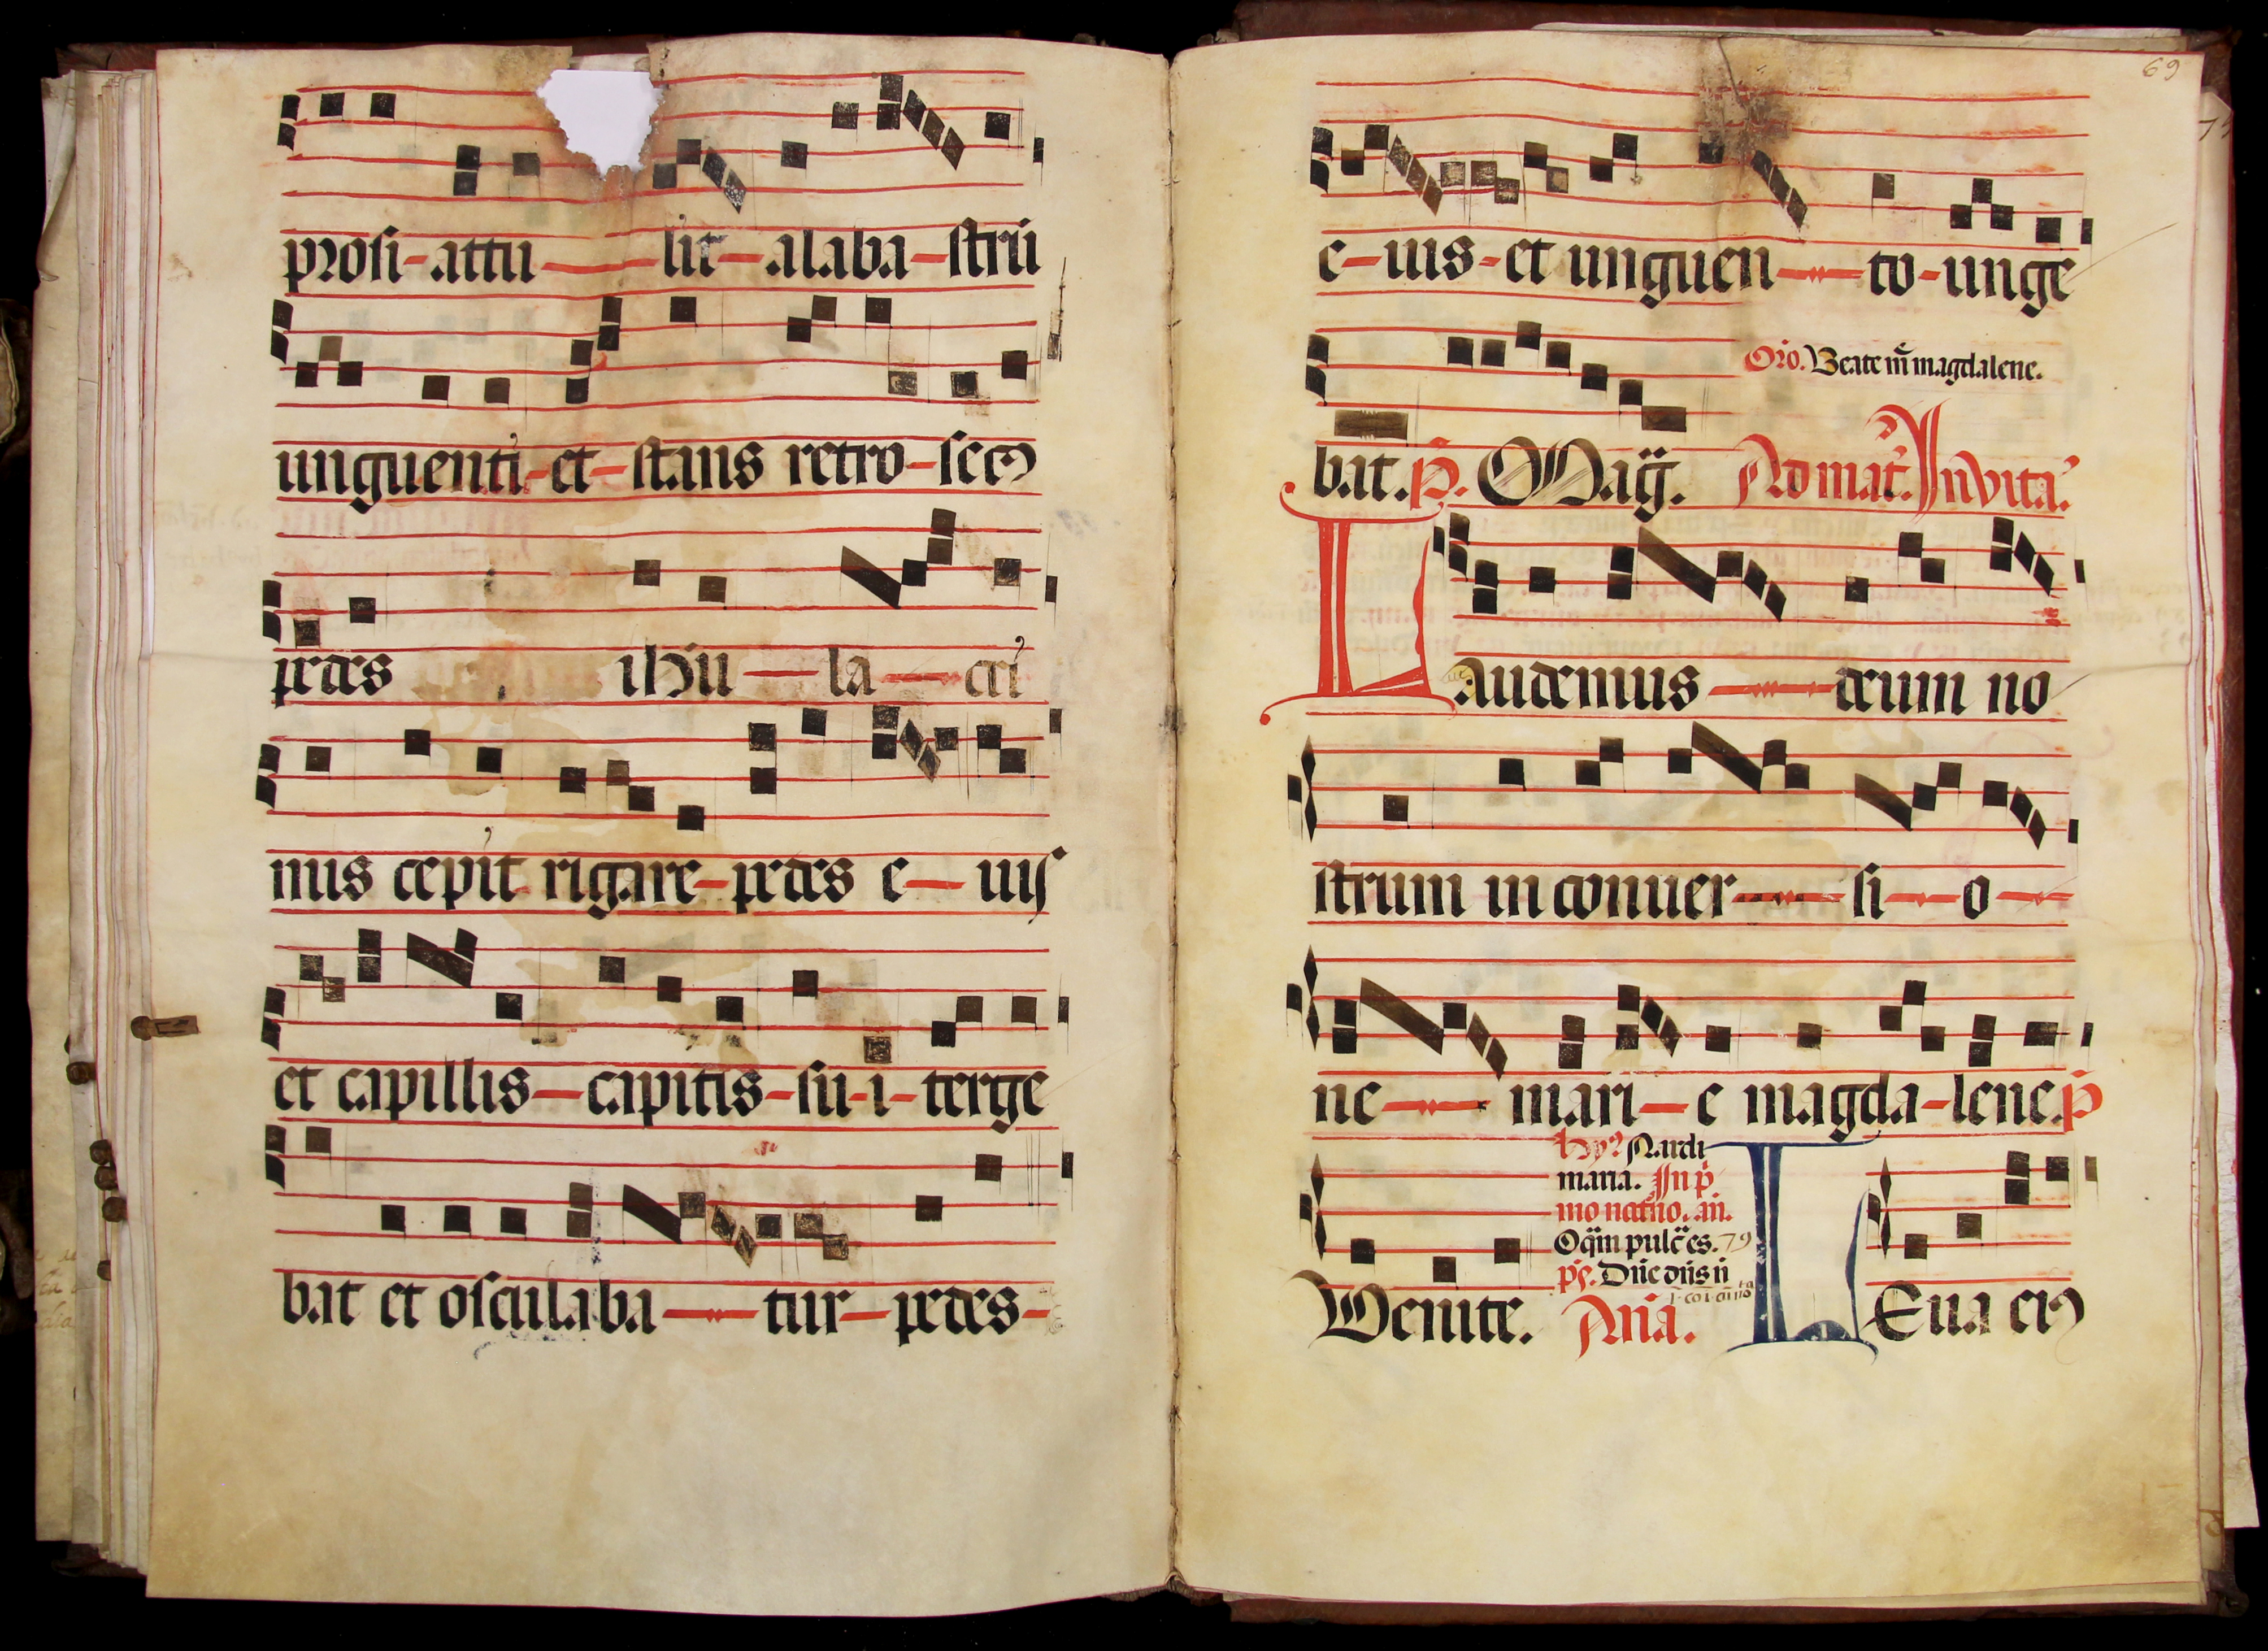 prosi-attu-lit-alaba-strū
unguenti-et-stans retro-secꝰ
pedes ihū-la-cri
mis cepit rigare-pedes e-iuſ
et capillis-capitis-su-i-terge
bat et osculaba-tur-pedes-
69
e-ius-et unguen-to-unge
Oro. Beate m̄ magdalene.
bat. P̄. Mag̅. Ad mat̅. Invita.
Laudemus-deum no
strum in conuer-si-o-
ne-mari-e magda-lene. p̄
hy. Nardi
maria. In p̄
mo noc̅tno. an̄.
Oq̄m pulc̅ es. 79
pſ. Dn̄e dn̄s n̄
Venite. Ana. LEua eiꝰ